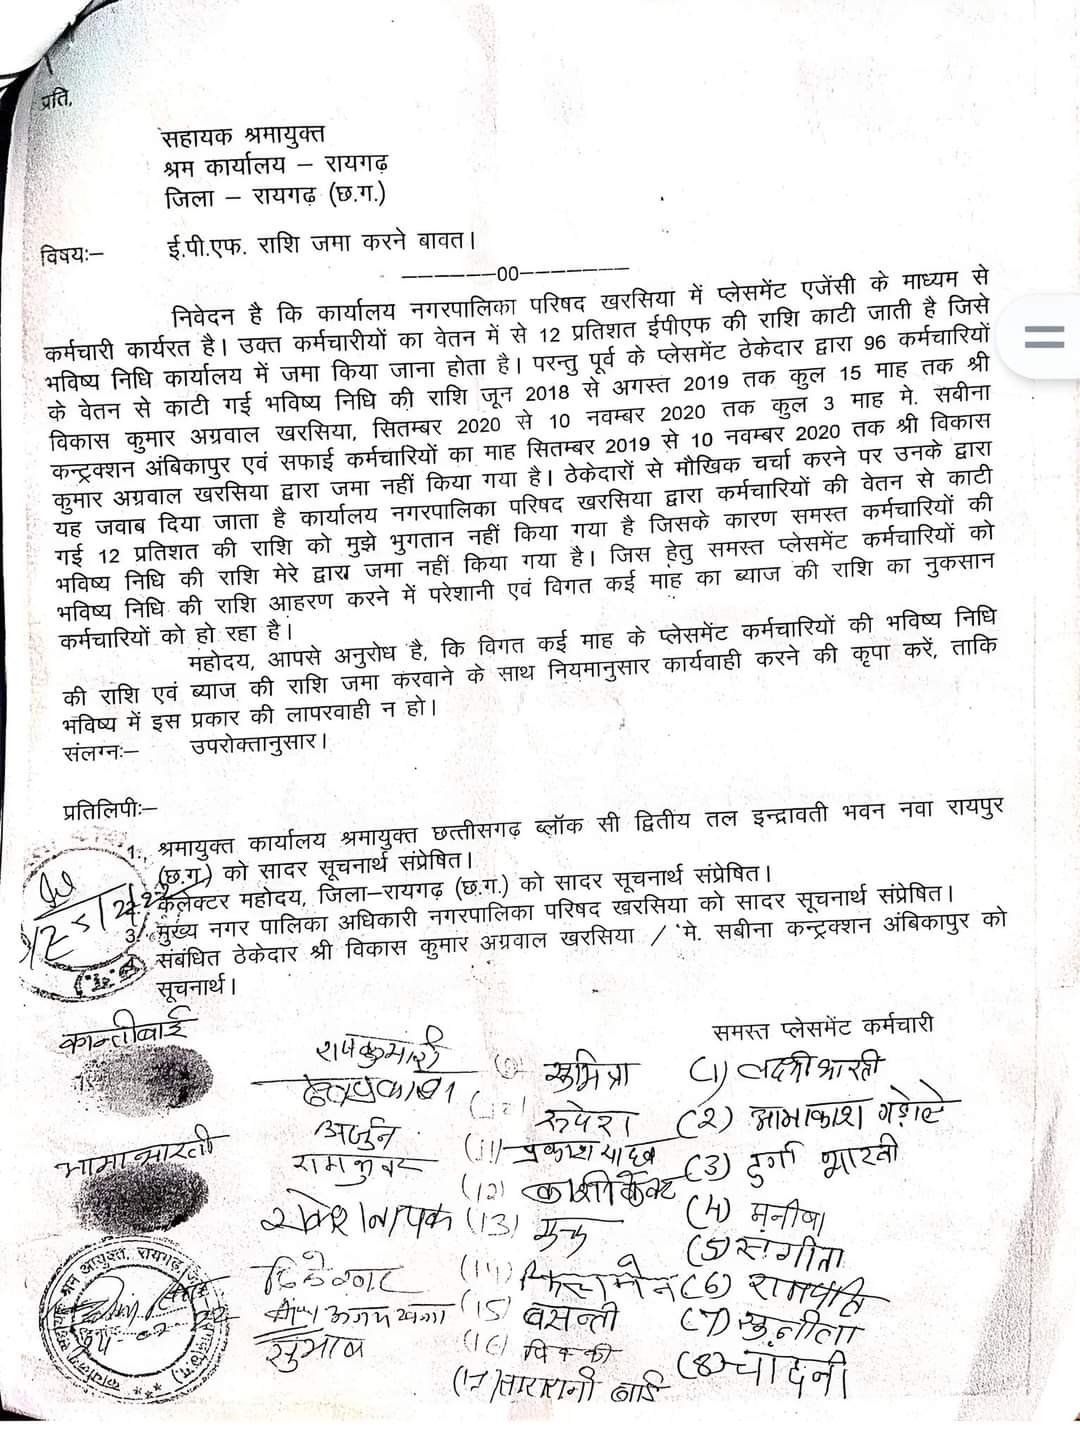 प्रति,
सहायक श्रमायुक्त
श्रम कार्यालय – रायगढ़
जिला – रायगढ़ (छ.ग.)
विषयः– ई.पी.एफ. राशि जमा करने बावत।
––––––00–––––––
निवेदन है कि कार्यालय नगरपालिका परिषद खरसिया में प्लेसमेंट एजेंसी के माध्यम से
कर्मचारी कार्यरत है। उक्त कर्मचारीयों का वेतन में से 12 प्रतिशत ईपीएफ की राशि काटी जाती है जिसे
भविष्य निधि कार्यालय में जमा किया जाना होता है। परन्तु पूर्व के प्लेसमेंट ठेकेदार द्वारा 96 कर्मचारियों
के वेतन से काटी गई भविष्य निधि की राशि जून 2018 से अगस्त 2019 तक कुल 15 माह तक श्री
विकास कुमार अग्रवाल खरसिया, सितम्बर 2020 से 10 नवम्बर 2020 तक कुल 3 माह मे. सबीना
कन्ट्रक्शन अंबिकापुर एवं सफाई कर्मचारियों का माह सितम्बर 2019 से 10 नवम्बर 2020 तक श्री विकास
कुमार अग्रवाल खरसिया द्वारा जमा नहीं किया गया है। ठेकेदारों से मौखिक चर्चा करने पर उनके द्वारा
यह जवाब दिया जाता है कार्यालय नगरपालिका परिषद खरसिया द्वारा कर्मचारियों की वेतन से काटी
गई 12 प्रतिशत की राशि को मुझे भुगतान नहीं किया गया है जिसके कारण समस्त कर्मचारियों की
भविष्य निधि की राशि मेरे द्वारा जमा नहीं किया गया है। जिस हेतु समस्त प्लेसमेंट कर्मचारियों को
भविष्य निधि की राशि आहरण करने में परेशानी एवं विगत कई माह का ब्याज की राशि का नुकसान
कर्मचारियों को हो रहा है।
महोदय, आपसे अनुरोध है, कि विगत कई माह के प्लेसमेंट कर्मचारियों की भविष्य निधि
की राशि एवं ब्याज की राशि जमा करवाने के साथ नियमानुसार कार्यवाही करने की कृपा करें, ताकि
भविष्य में इस प्रकार की लापरवाही न हो।
संलग्नः– उपरोक्तानुसार।
प्रतिलिपीः–
1. श्रमायुक्त कार्यालय श्रमायुक्त छत्तीसगढ़ ब्लॉक सी द्वितीय तल इन्द्रावती भवन नवा रायपुर
(छ.ग.) को सादर सूचनार्थ संप्रेषित।
कलेक्टर महोदय, जिला–रायगढ़ (छ.ग.) को सादर सूचनार्थ संप्रेषित।
3. मुख्य नगर पालिका अधिकारी नगरपालिका परिषद खरसिया को सादर सूचनार्थ संप्रेषित।
संबंधित ठेकेदार श्री विकास कुमार अग्रवाल खरसिया / मे. सबीना कन्ट्रक्शन अंबिकापुर को
सूचनार्थ।
समस्त प्लेसमेंट कर्मचारी
कान्तीबाई
राजकुमारी
सुमित्रा
(1)
रूपेश
(2)
अर्जुन
(11) प्रकाश यादव
(3) दुर्गा भारती
रामकुवर
(12)
(4) मनीषा
(13)
(5) संगीता
(14)
(6)
(15) बसन्ती
(7) सुनीता
(16) पिंककी
(8) चांदनी
सुभाष
(17) तारारानी बाई